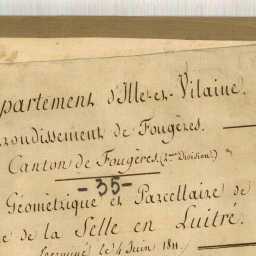 partement d'Ille-et-Vilaine.
rrondissement de Fougères.
Canton de Fougères. (2me Division)
-35-
Géométrique et Parcellaire de
e de la Selle en Luitré.
Terminé le 4 Juin 1811